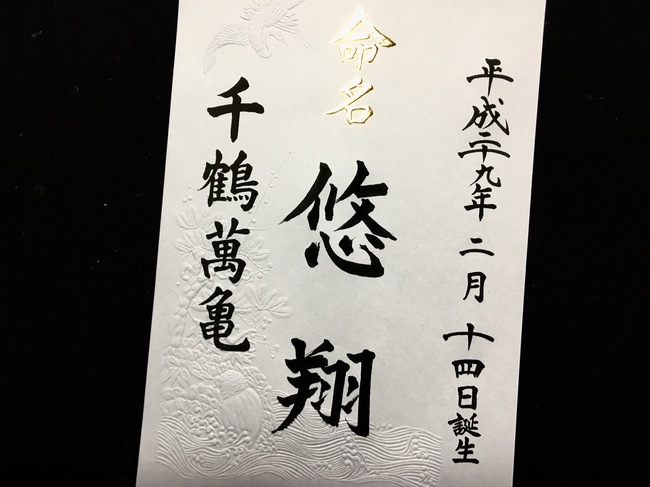 平成二十九年 二月 十四日誕生
命名
悠翔
千鶴萬亀